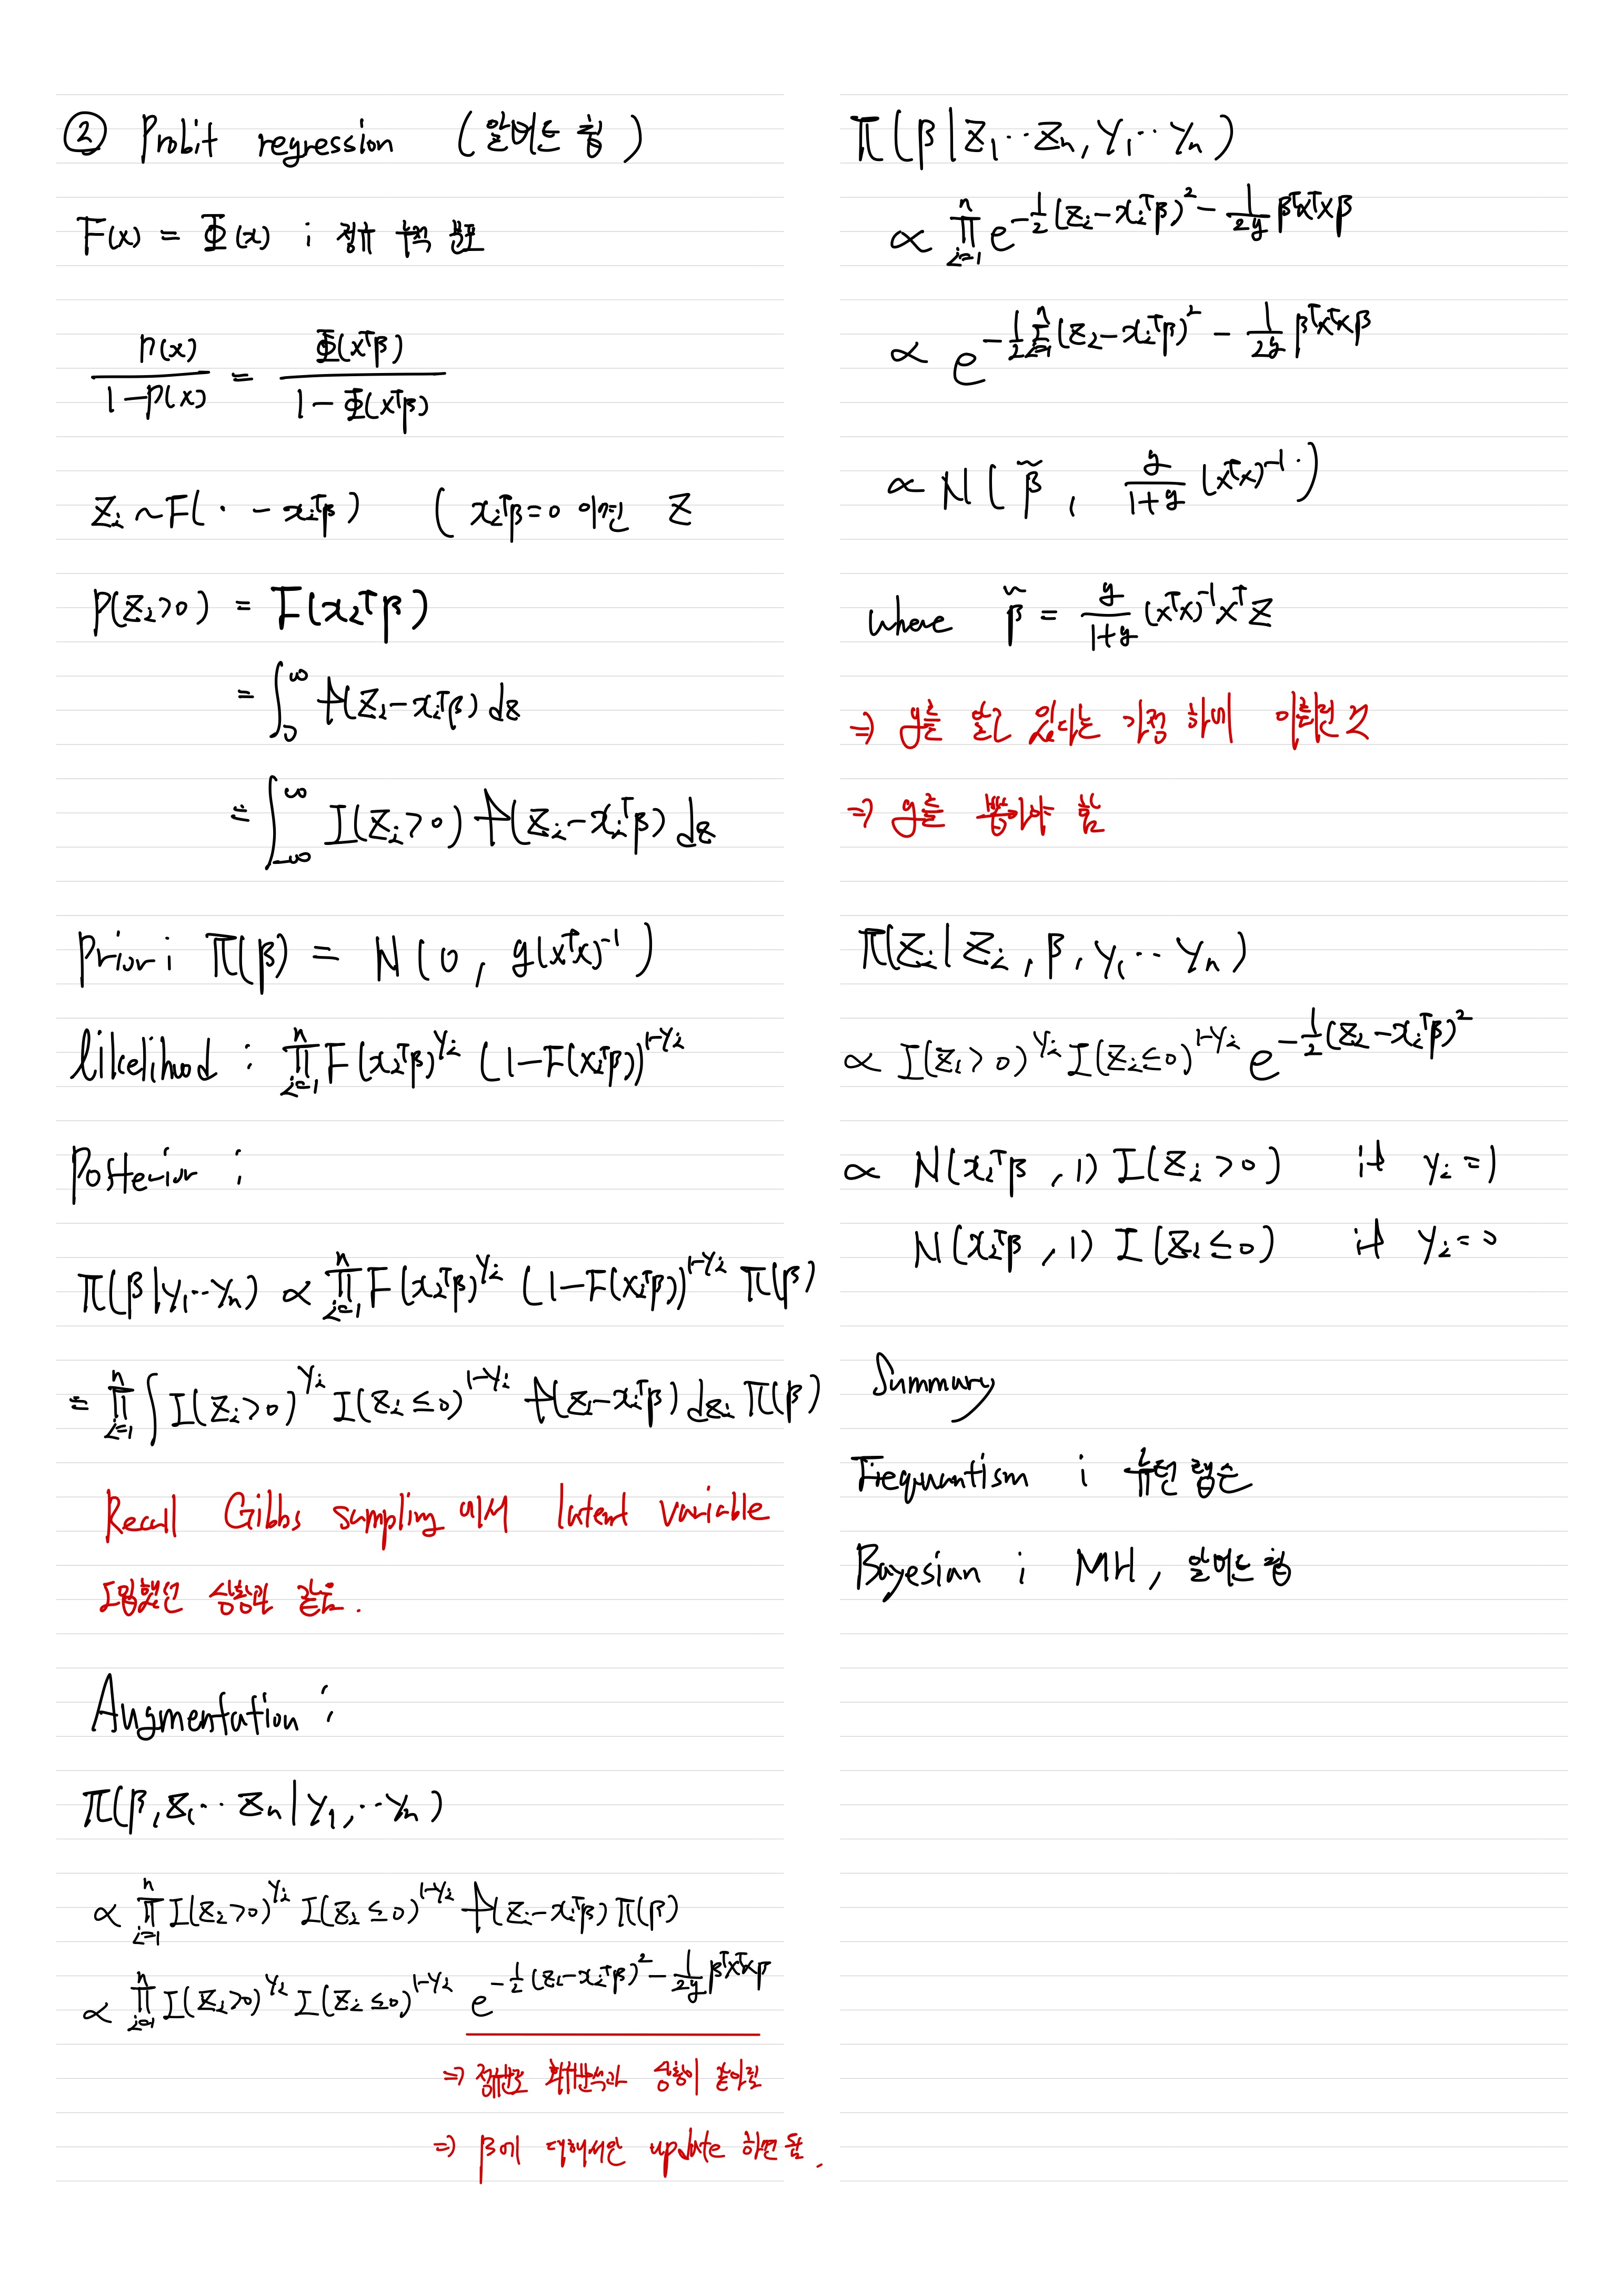 ② Probit regression (알버트 칩)
F(x) = Φ(x) ; 정규 누적 분포
p(x) / (1-p(x)) = Φ(xᵀβ) / (1-Φ(xᵀβ))
Zᵢ ~ F(· - xᵢᵀβ) ( xᵢᵀβ=0 이면 Z
P(Zᵢ>0) = F(xᵢᵀβ)
= ∫₀^∞ f(Zᵢ-xᵢᵀβ) dz
= ∫_{-∞}^∞ I(Zᵢ>0) f(Zᵢ-xᵢᵀβ) dz
Prior ; π(β) = N(0, g(xᵀx)⁻¹)
likelihood : ∏_{i=1}^n F(xᵢᵀβ)^{yᵢ} (1-F(xᵢᵀβ))^{1-yᵢ}
Posterior ;
π(β|y₁··yₙ) ∝ ∏_{i=1}^n F(xᵢᵀβ)^{yᵢ} (1-F(xᵢᵀβ))^{1-yᵢ} π(β)
= ∏_{i=1}^n ∫ I(Zᵢ>0)^{yᵢ} I(Zᵢ≤0)^{1-yᵢ} f(zᵢ-xᵢᵀβ) dzᵢ π(β)
Recall Gibbs sampling 에서 latent variable
도입했던 상황과 같음.
Augmentation :
π(β, Z₁·· Zₙ | y₁, ··yₙ)
∝ ∏_{i=1}^n I(Zᵢ>0)^{yᵢ} I(Zᵢ≤0)^{1-yᵢ} f(zᵢ-xᵢᵀβ) π(β)
∝ ∏_{i=1}^n I(Zᵢ>0)^{yᵢ} I(Zᵢ≤0)^{1-yᵢ} e^{-1/2 (zᵢ-xᵢᵀβ)² - 1/2g βᵀxᵀxβ}
⇒ 정규분포 회귀분석과 상황이 같아짐
⇒ β에 대해서만 update 하면 됨.
π(β | Z₁·· Zₙ, Y₁·· Yₙ)
∝ ∏_{i=1}^n e^{-1/2 (Zᵢ-xᵢᵀβ)² - 1/2g βᵀxᵀxβ}
∝ e^{-1/2 Σ_{i=1}^n (Zᵢ-xᵢᵀβ)² - 1/2g βᵀxᵀxβ}
∝ N( β̃, g/(1+g) (xᵀx)⁻¹ )
where β̃ = g/(1+g) (xᵀx)⁻¹xᵀZ
⇒ g를 알고 있다는 가정 하에 이뤄진 것
⇒ g를 뽑아야 함
π(Zᵢ | Zᵢ, β, y₁·· yₙ)
∝ I(Zᵢ>0)^{yᵢ} I(Zᵢ≤0)^{1-yᵢ} e^{-1/2 (Zᵢ-xᵢᵀβ)²}
∝ N(xᵢᵀβ, 1) I(Zᵢ>0) if yᵢ=1
N(xᵢᵀβ, 1) I(Zᵢ≤0) if yᵢ=0
Summary
Frequantism ; 뉴턴 랩슨
Bayesian ; MH, 알버트 칩